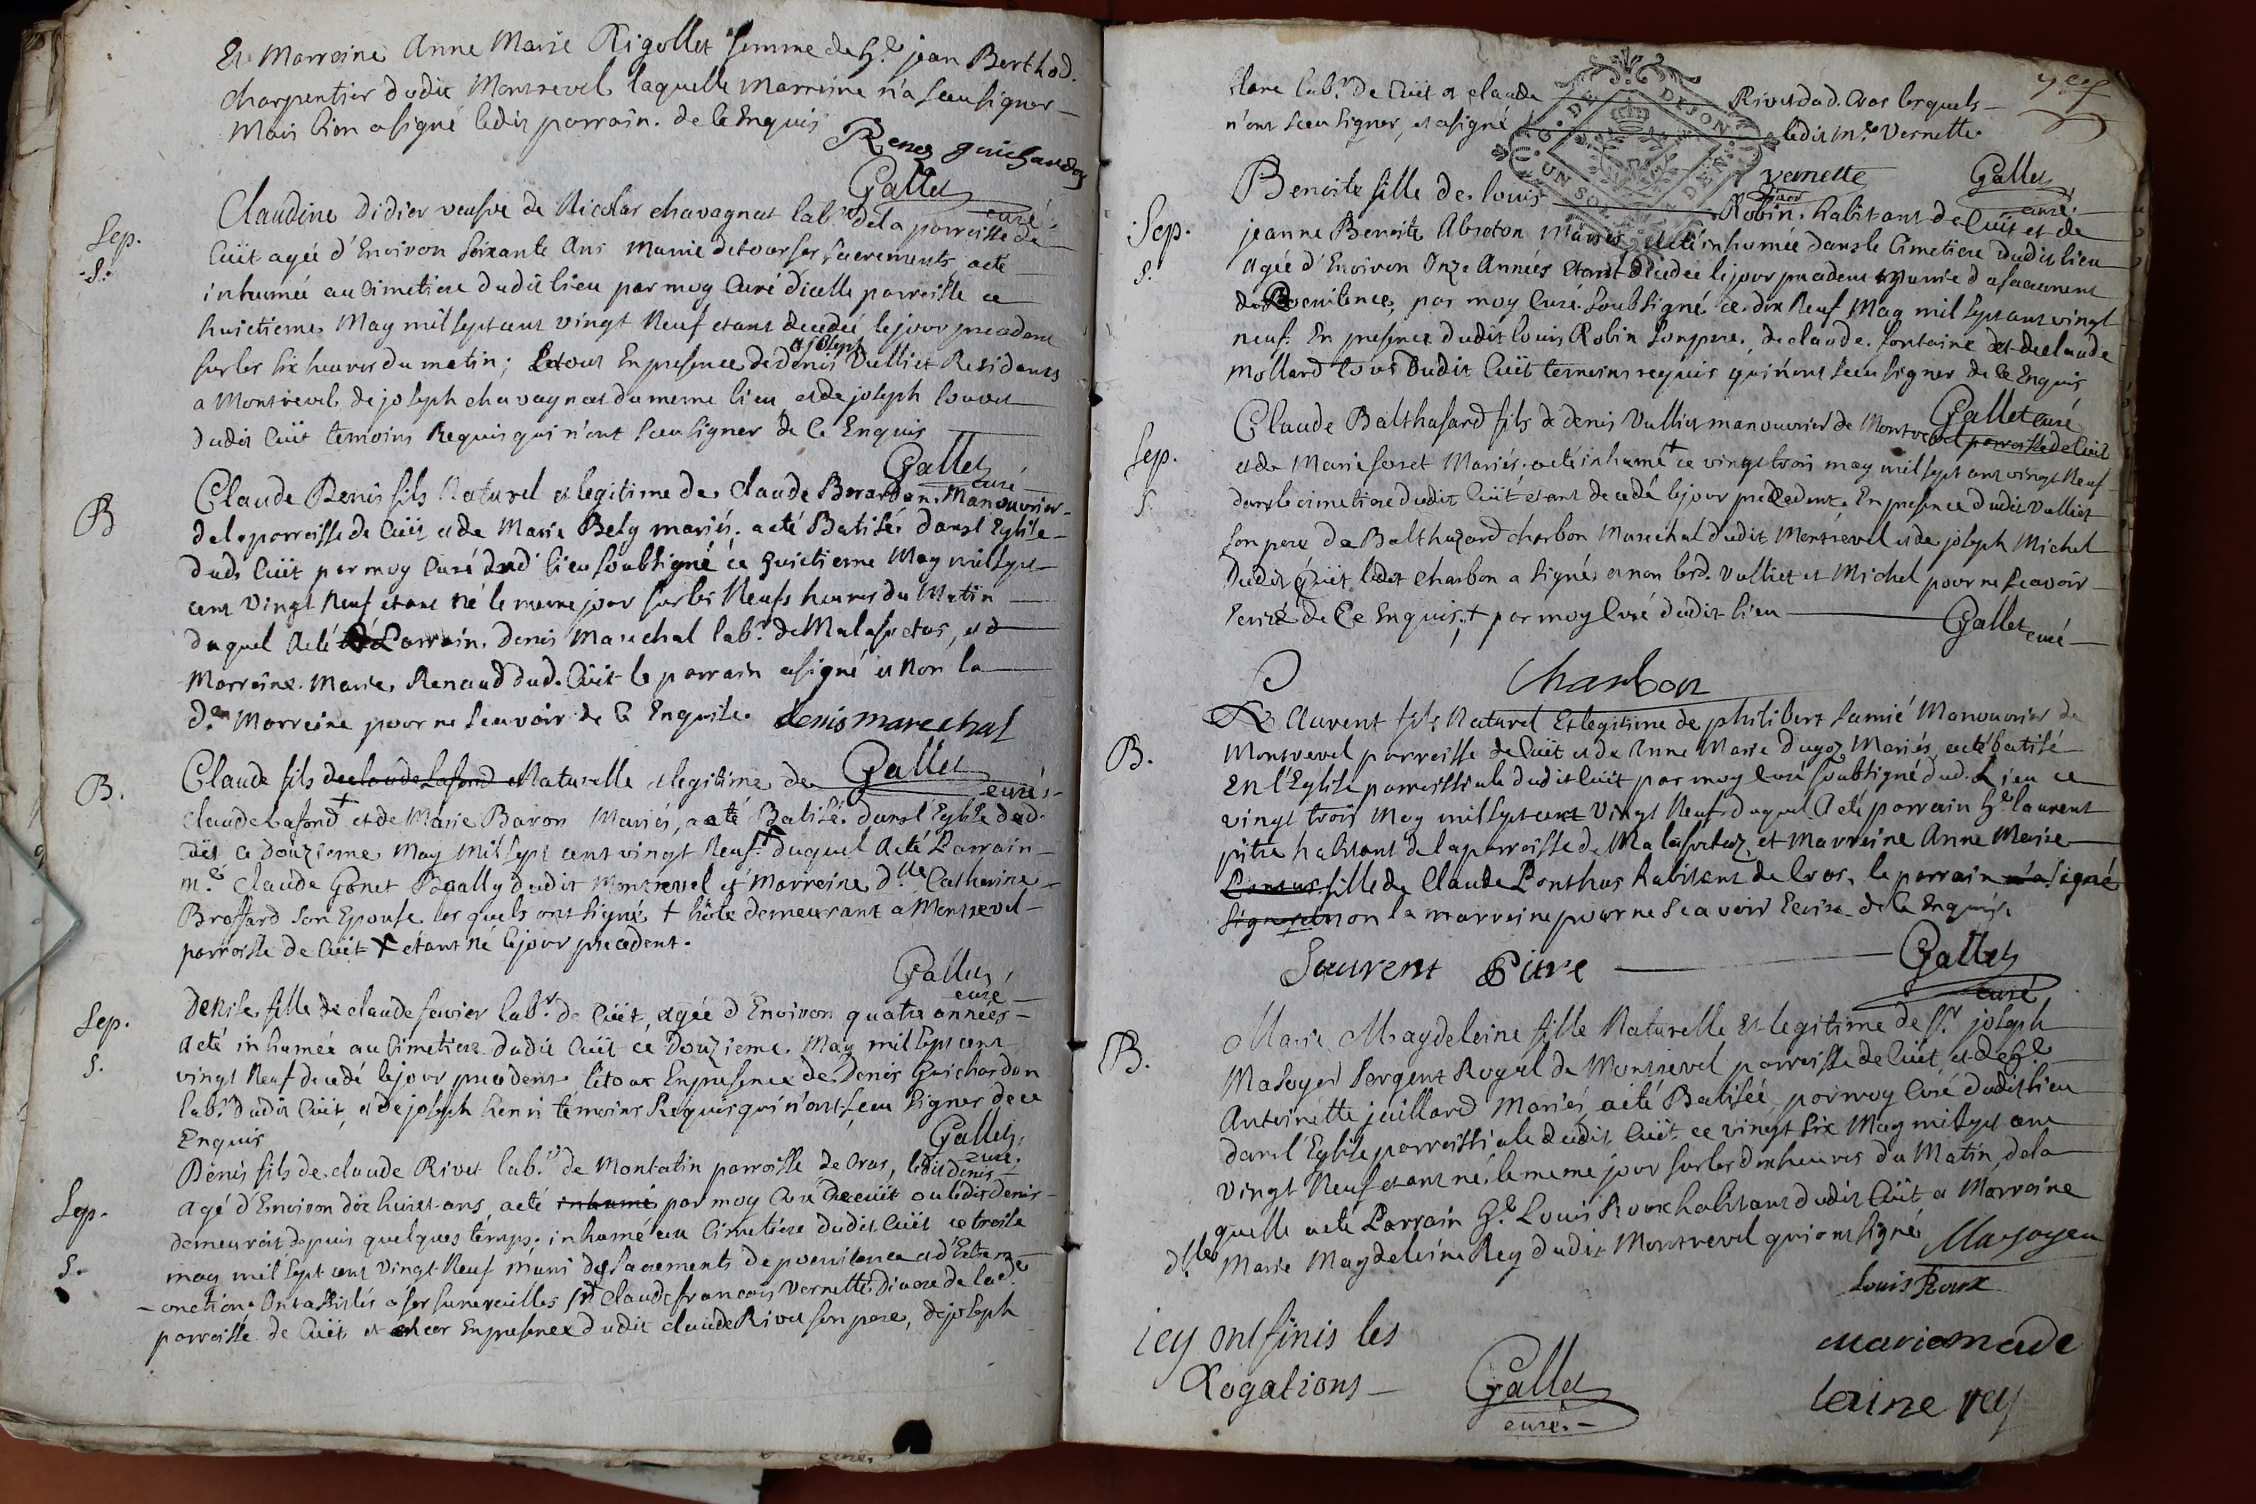 Et Marreine Anne Marie Rigollet femme de h.e jean Berthod.
charpentier dudit Montrevel laquelle Marreine n'a sceu signer
Mais bien a signé ledit parrain. de ce Enquis
Renez guichardon
Gallet
curé
Sep.
S.
Claudine Didier veufve de Nicolas chavagnat lab.r de la parroisse de
Cüit agée d'Environ soixante Ans munie de tous ses sacrements, a eté
inhumée au Cimetiere dudit lieu par moy Curé d'icelle parroisse ce
huictieme May mil sept cent vingt Neuf etant decedée le jour precedent
sur les six heures du matin; Le tout En presence de denis & joseph Vulliet Residents
a Montrevel de joseph chavagnat du meme lieu et de joseph louvet
dudit Cüit temoins Requis qui n'ont sceu signer de Ce Enquis
Gallet
curé
B
Claude Denis fils Naturel et legitime de Claude Berardan Manouvrier
de la parroisse de Cüit et de Marie Bely mariés. a eté Batisé dans l'Eglise
dud. Cüit par moy Curé dud. lieu soubsigné ce huictieme May mil sept
cent vingt Neuf etant Né le meme jour sur les Neufs heures du Matin
duquel a eté Parrain. Denis Marechal lab.r de Malafretas, et
Marreine. Marie Renaud dud. Cüit le parrain a signé et Non la
d.e Marreine pour ne scavoir de ce Enquise. denis marechal
Gallet
curé
B.
Claude fils de claude Lafond Naturelle et legitime de
Claude Lafond + et de Marie Baron Mariés, a eté Batisé. dans l'Eglise dud.
Cüit ce douzieme May mil sept cent vingt Neuf + duquel a eté Parrain
m.e Claude Gonet dudit Montrevel et Marreine d.lle Catherine
Brossard son Epouse les quels ont signé + hôte demeurant a Montrevel
parroisse de Cüit + etant né le jour precedent.
Gallet
curé
Sep.
S.
Denise fille de claude fevrier lab.r de Cüit, agée d'Environ quatre années
a eté inhumée au Cimetiere dudit Cüit ce Douzieme. May mil sept cent
vingt Neuf decedé le jour precedent le tout En presence de Denis Guichardon
lab.r dudit Cüit, et de joseph henri témoins Requis qui n'ont sceu signer de ce
Enquis
Gallet
curé.
Sep.
S.
Denis fils de claude Rivet lab.r de Montatin parroisse de Cras, ledit denis
agé d'Environ dix huict ans, a eté inhumé par moy Curé de Cüit ou ledit denis
demeuroit depuis quelques temps. inhumé au Cimetiere dudit Cüit ce treise
may mil sept cent vingt Neuf muni des sacrements de poenitence et d'Extreme
onction. Ont assistés a ses funerailles Sr Claude francois Vernette Diacre de la d.e
parroisse de Cüit et encor En presence dudit claude Rivet son pere, de joseph
clare lab.r de Cüit et claude Rivet dud. Cras lesquels
n'ont sceu signer, et a signé ledit m.e Vernette.
G. DE DIJON
UN SOL DEN
vernette
diacre
Gallet
curé.
Sep.
S.
Benoite fille de louis Robin. habitant de Cüit et de
jeanne Benoite Abraton Mariés, a eté inhumée dans le Cimetiere dudit lieu
agée d'Environ Onze Années etant decedée le jour precedent munie du sacrement
de Poenitence, par moy Curé soubsigné ce dix Neuf May mil sept cent vingt
neuf. En presence dudit louis Robin son pere, de claude. fontaine et de claude
mollard tous dudit Cüit temoins requis qui n'ont sceu signer de Ce Enquis
Gallet curé
Sep.
S.
Claude Balthasard fils de denis Vulliet manouvrier de Montrevel parroisse de Cüit
et de Marie foret Mariés. a eté inhumé + ce vingt trois may mil sept cent vingt Neuf
dans le cimetiere dudit Cüit etant decedé le jour precedent. En presence dudit Vulliet
son pere de Balthazard charbon Marechal dudit Montrevel et de joseph Michel
dudit Cüit ledit charbon a signé et non lesd. Vulliet et Michel pour ne scavoir
Ecrire de Ce Enquis, + par moy Curé dudit lieu
Gallet curé
Charbon
B.
Laurent fils Naturel Et legitime de philibert Lamié Manouvrier de
Montrevel parroisse de Cüit et de Anne Marie dugoz Mariés, a eté batisé
En l'Eglise parroissiale dudit Cüit par moy Curé soubsigné dud. Lieu ce
vingt trois May mil sept cent vingt Neuf. duquel a eté parrain h.e laurent
pitre habitant de la parroisse de Malafretaz et Marreine Anne Marie
Ponthus fille de Claude Ponthus habitant de Cras, le parrain n'a signé
signer et non la marreine pour ne scavoir Ecrire de Ce Enquise
Laurent Pitre
Gallet
curé
B.
Marie Magdeleine fille Naturelle Et legitime de Sr. joseph
Masoyer sergent Royal de Montrevel parroisse de Cüit, et de h.e
Antoinette juillard Mariés, a eté Batisée par moy Curé dudit lieu
dans l'Eglise parroissiale dudit Cüit ce vingt six May mil sept cent
vingt Neuf etant né, le meme jour sur les dix heures du Matin, de la
quelle a eté Parrain h.e Louis Roux habitant dudit Cüit et Marreine
d.lle Marie Magdeleine Rey dudit Montrevel qui ont signé
Masoyer
Louis Roux
marie made
laine rey
icy ont finis les
Rogations
Gallet
curé.